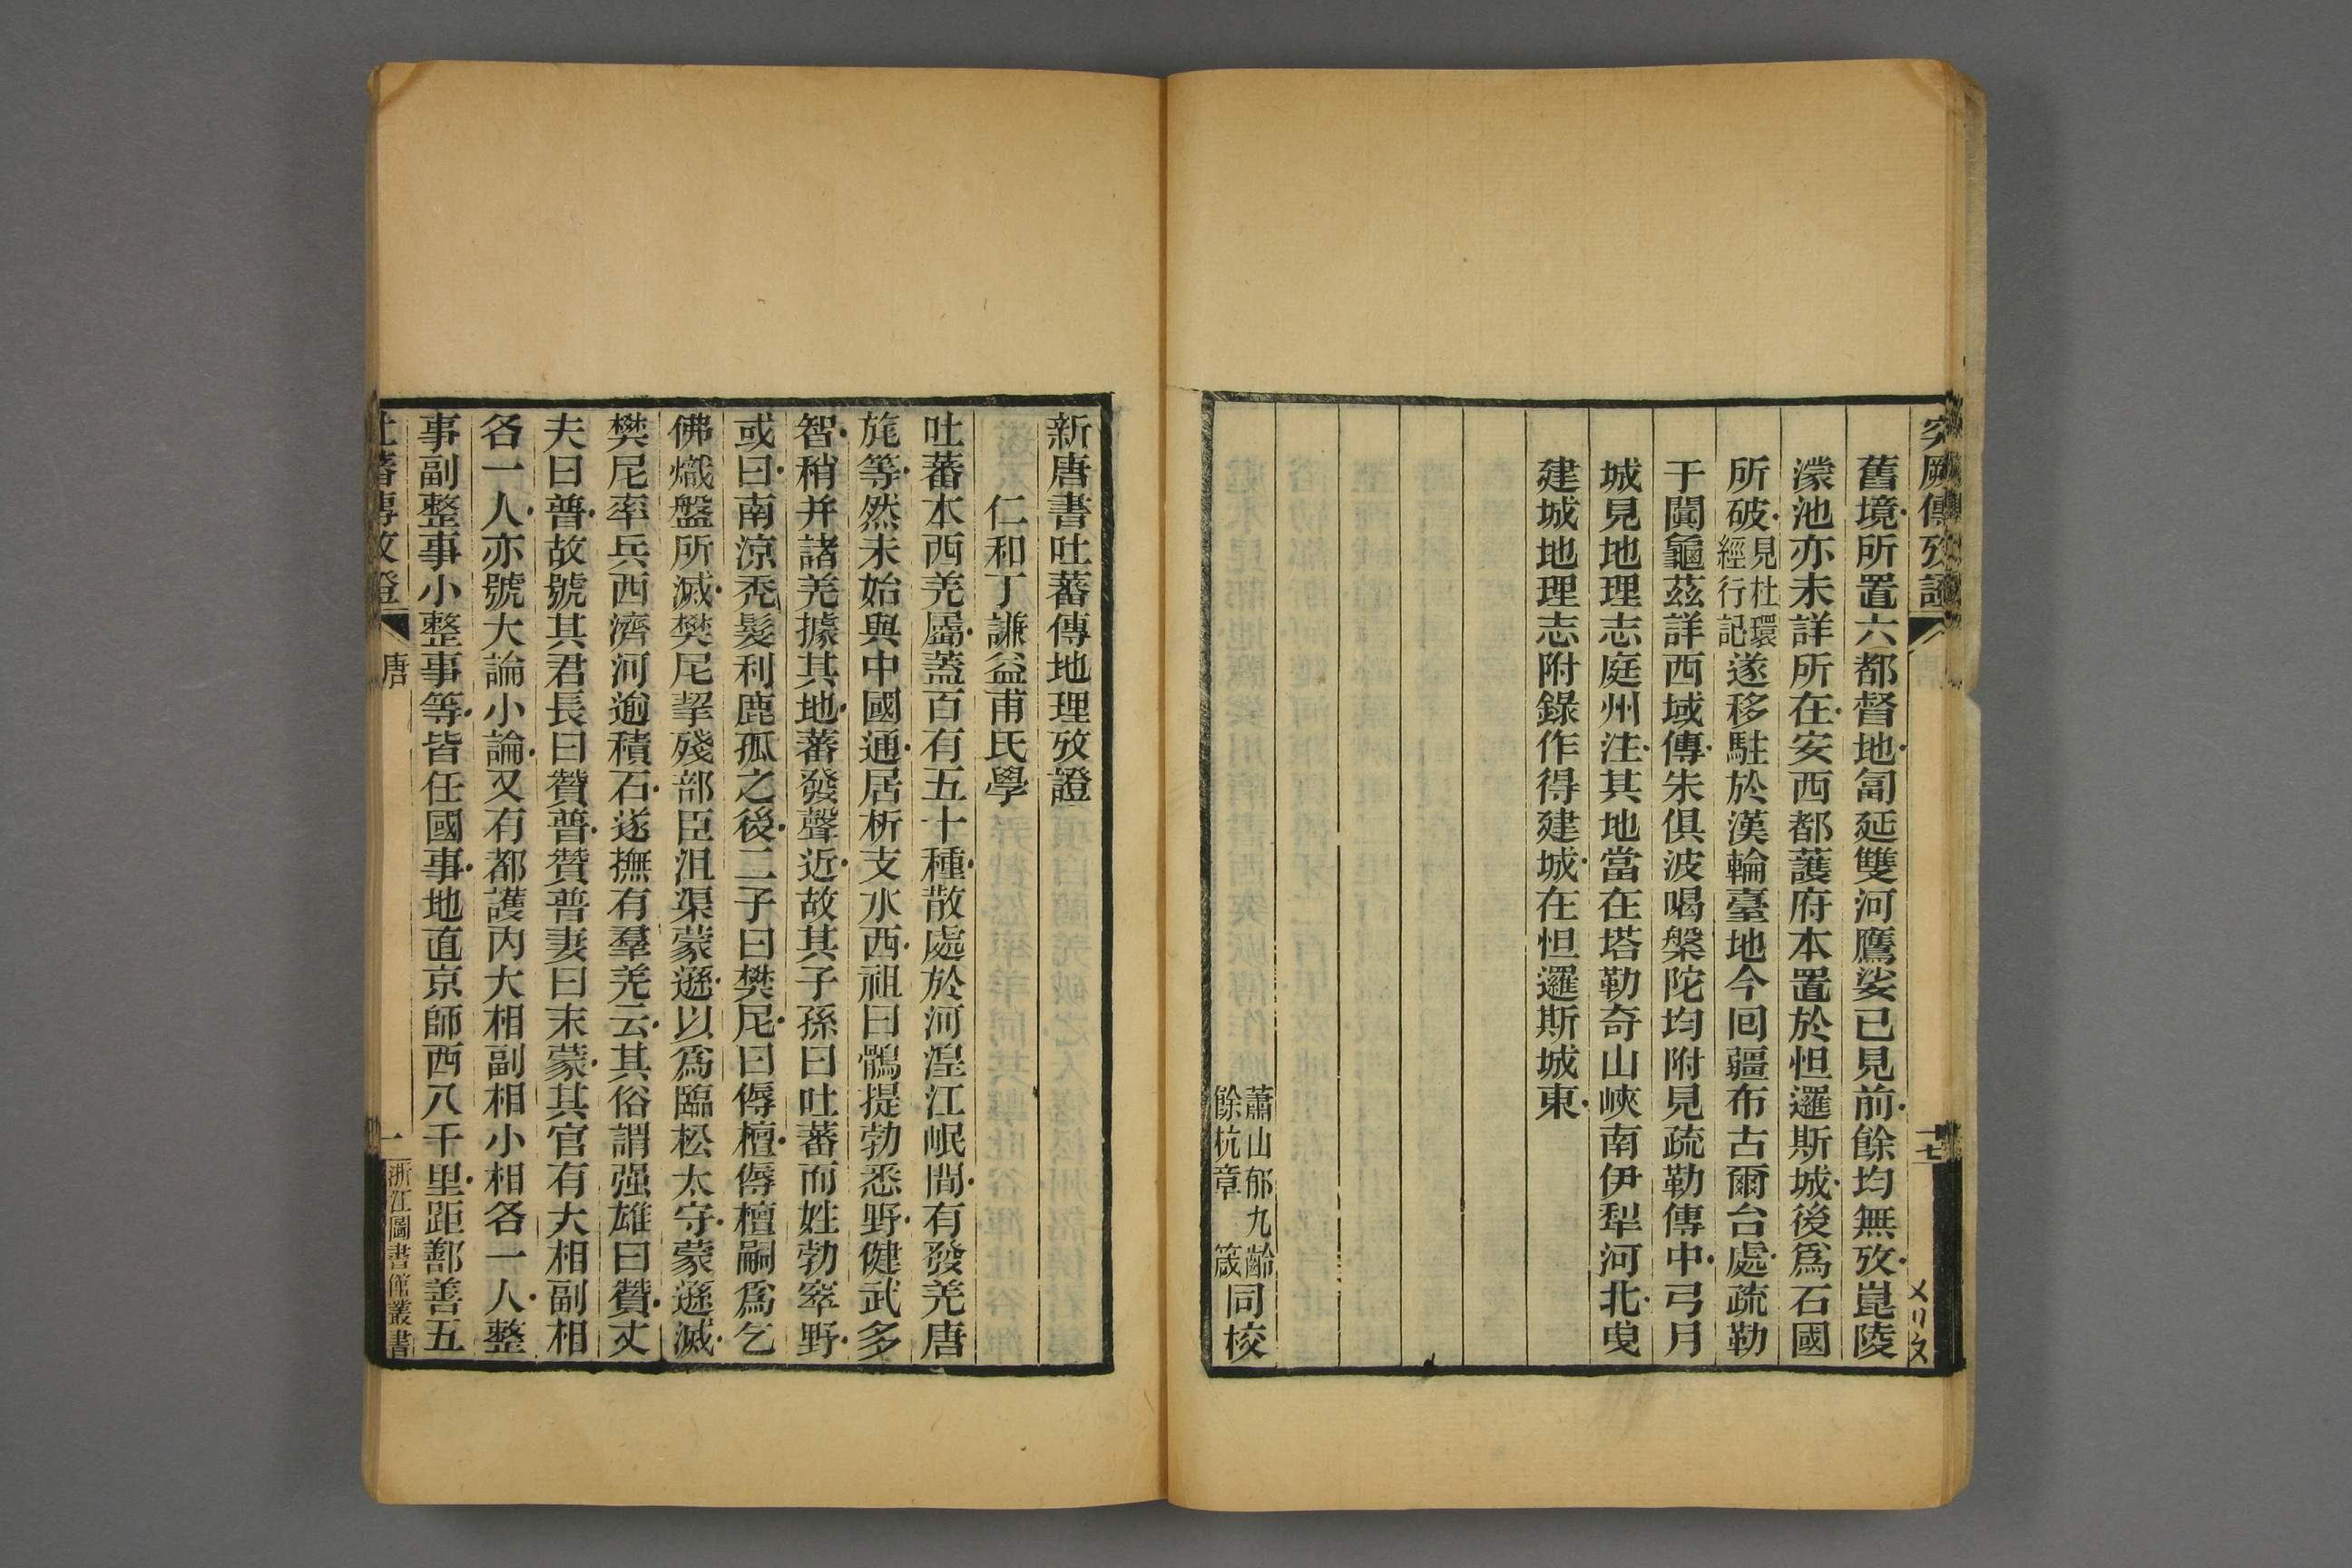 突厥傳攷證
十七
舊境所置六都督地匐延雙河鷹娑已見前餘均無攷崑陵
濛池亦未詳所在安西都護府本置於怛邏斯城後爲石國
所破見杜環經行記遂移駐於漢輪臺地今回疆布古爾台處疏勒
于闐龜茲詳西域傳朱俱波喝槃陀均附見疏勒傳中弓月
城見地理志庭州注其地當在塔勒奇山峽南伊犁河北曳
建城地理志附錄作得建城在怛邏斯城東
蕭山郁九齡
餘杭章 箴同校
新唐書吐蕃傳地理攷證
仁和丁謙益甫氏學
吐蕃本西羌屬蓋百有五十種散處於河湟江岷間有發羌唐
旄等然未始與中國通居析支水西祖曰鶻提勃悉野健武多
智稍并諸羌據其地蕃發聲近故其子孫曰吐蕃而姓勃窣野
或曰南涼禿髮利鹿孤之後二子曰樊尼曰傉檀傉檀嗣爲乞
佛熾盤所滅樊尼挈殘部臣沮渠蒙遜以爲臨松太守蒙遜滅
樊尼率兵西濟河逾積石遂撫有羣羌云其俗謂强雄曰贊丈
夫曰普故號其君長曰贊普贊普妻曰末蒙其官有大相副相
各一人亦號大論小論又有都護內大相副相小相各一人整
事副整事小整事等皆任國事地直京師西八千里距鄯善五
吐蕃傳攷證
唐
一
浙江圖書館叢書